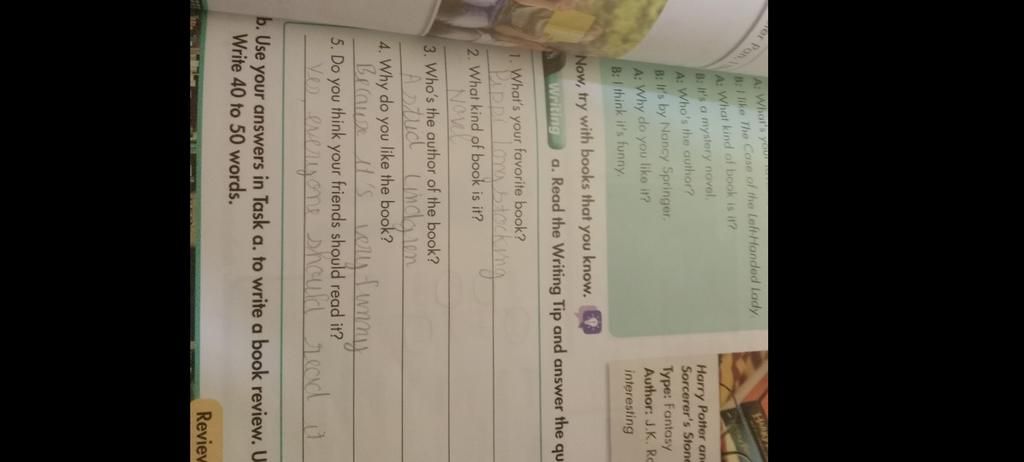 A: What's your
B: I like The Case of the Left-Handed Lady.
A: What kind of book is it?
B: It's a mystery novel.
A: Who's the author?
B: It's by Nancy Springer.
A: Why do you like it?
B: I think it's funny.
Harry Potter and
Sorcerer's Stone
Type: Fantasy
Author: J.K. Ro
interesting
Now, try with books that you know.
Writing a. Read the Writing Tip and answer the qu
1. What's your favorite book?
Pippi Longstocking
2. What kind of book is it?
Novel
3. Who's the author of the book?
Astrid Lindgren
4. Why do you like the book?
Because it's very funny
5. Do you think your friends should read it?
Yes, everyone should read it
b. Use your answers in Task a. to write a book review. U
Write 40 to 50 words.
Review